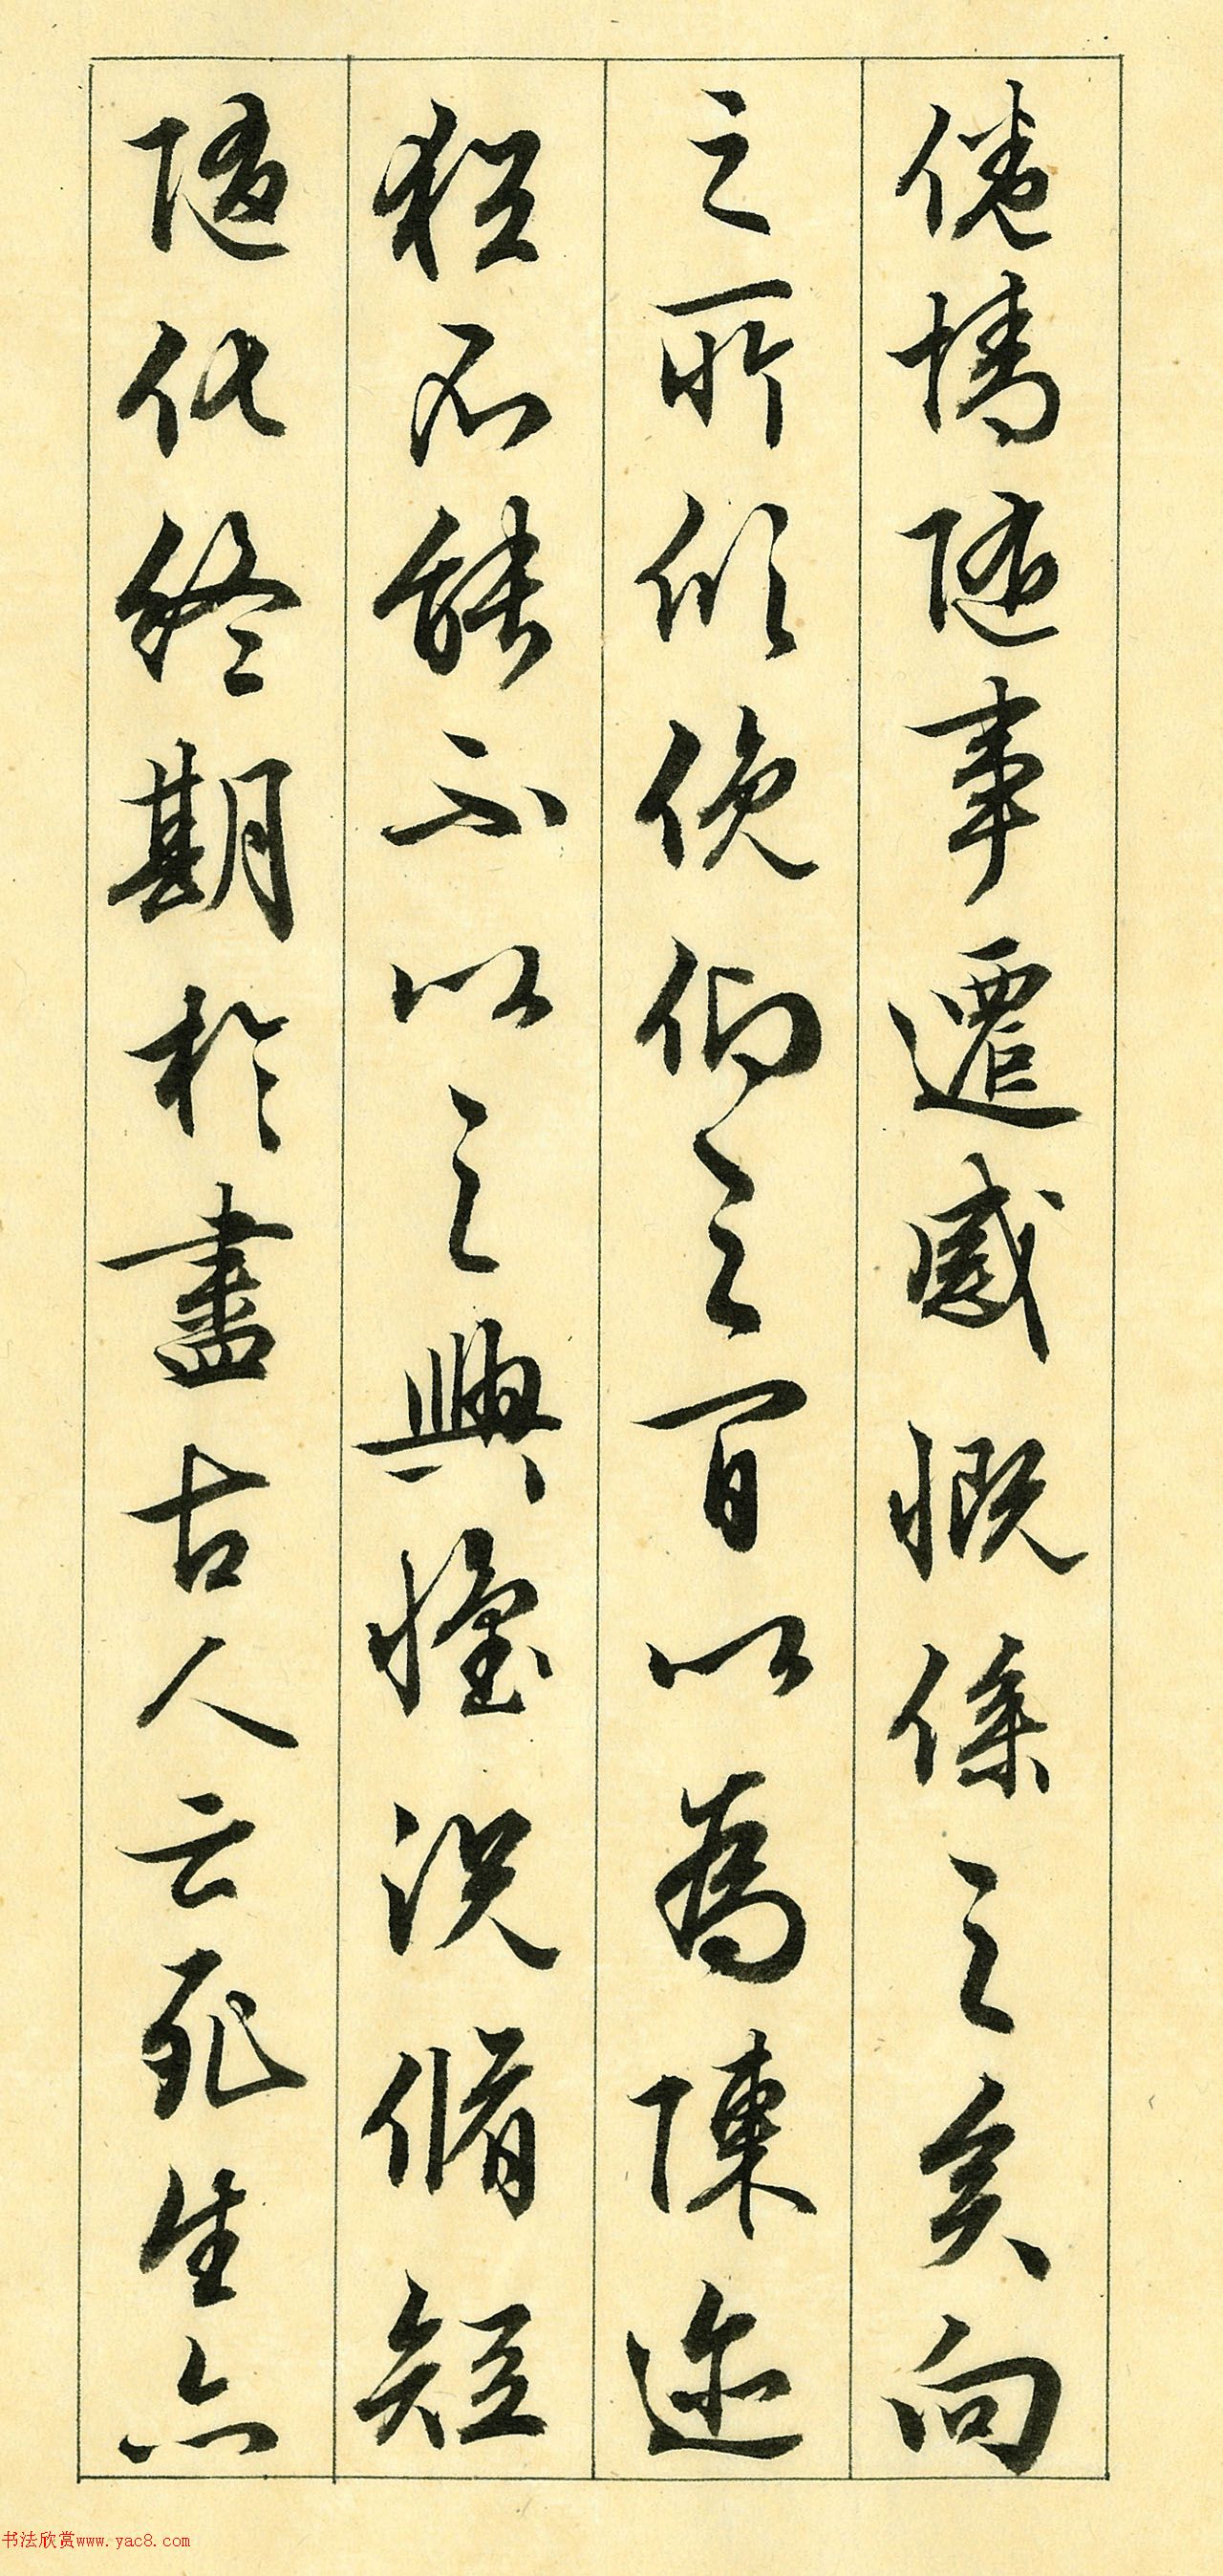 倦情隨事遷感慨係之矣向
之所欣俛仰之間以為陳迹
猶不能不以之興懷況脩短
隨化終期於盡古人云死生亦
书法欣赏www.yac8.com